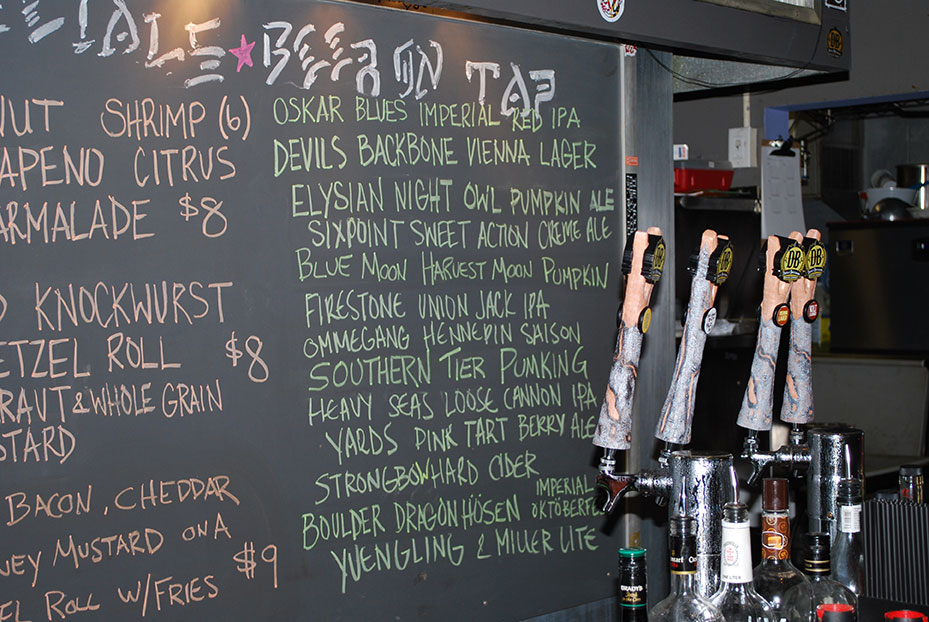 BEER ON TAP
SHRIMP (6)
CITRUS
$8
KNOCKWURST
ROLL $8
& WHOLE GRAIN
BACON, CHEDDAR
MUSTARD ON A
$9
ROLL W/FRIES
OSKAR BLUES IMPERIAL RED IPA
DEVILS BACKBONE VIENNA LAGER
ELYSIAN NIGHT OWL PUMPKIN ALE
SIXPOINT SWEET ACTION CREME ALE
BLUE MOON HARVEST MOON PUMPKIN
FIRESTONE UNION JACK IPA
OMMEGANG HENNEPIN SAISON
SOUTHERN TIER PUMKING
HEAVY SEAS LOOSE CANNON IPA
YARDS PINK TART BERRY ALE
STRONGBOW HARD CIDER
BOULDER DRAGONHÖSEN IMPERIAL
YUENGLING & MILLER LITE
DB
DB
DB